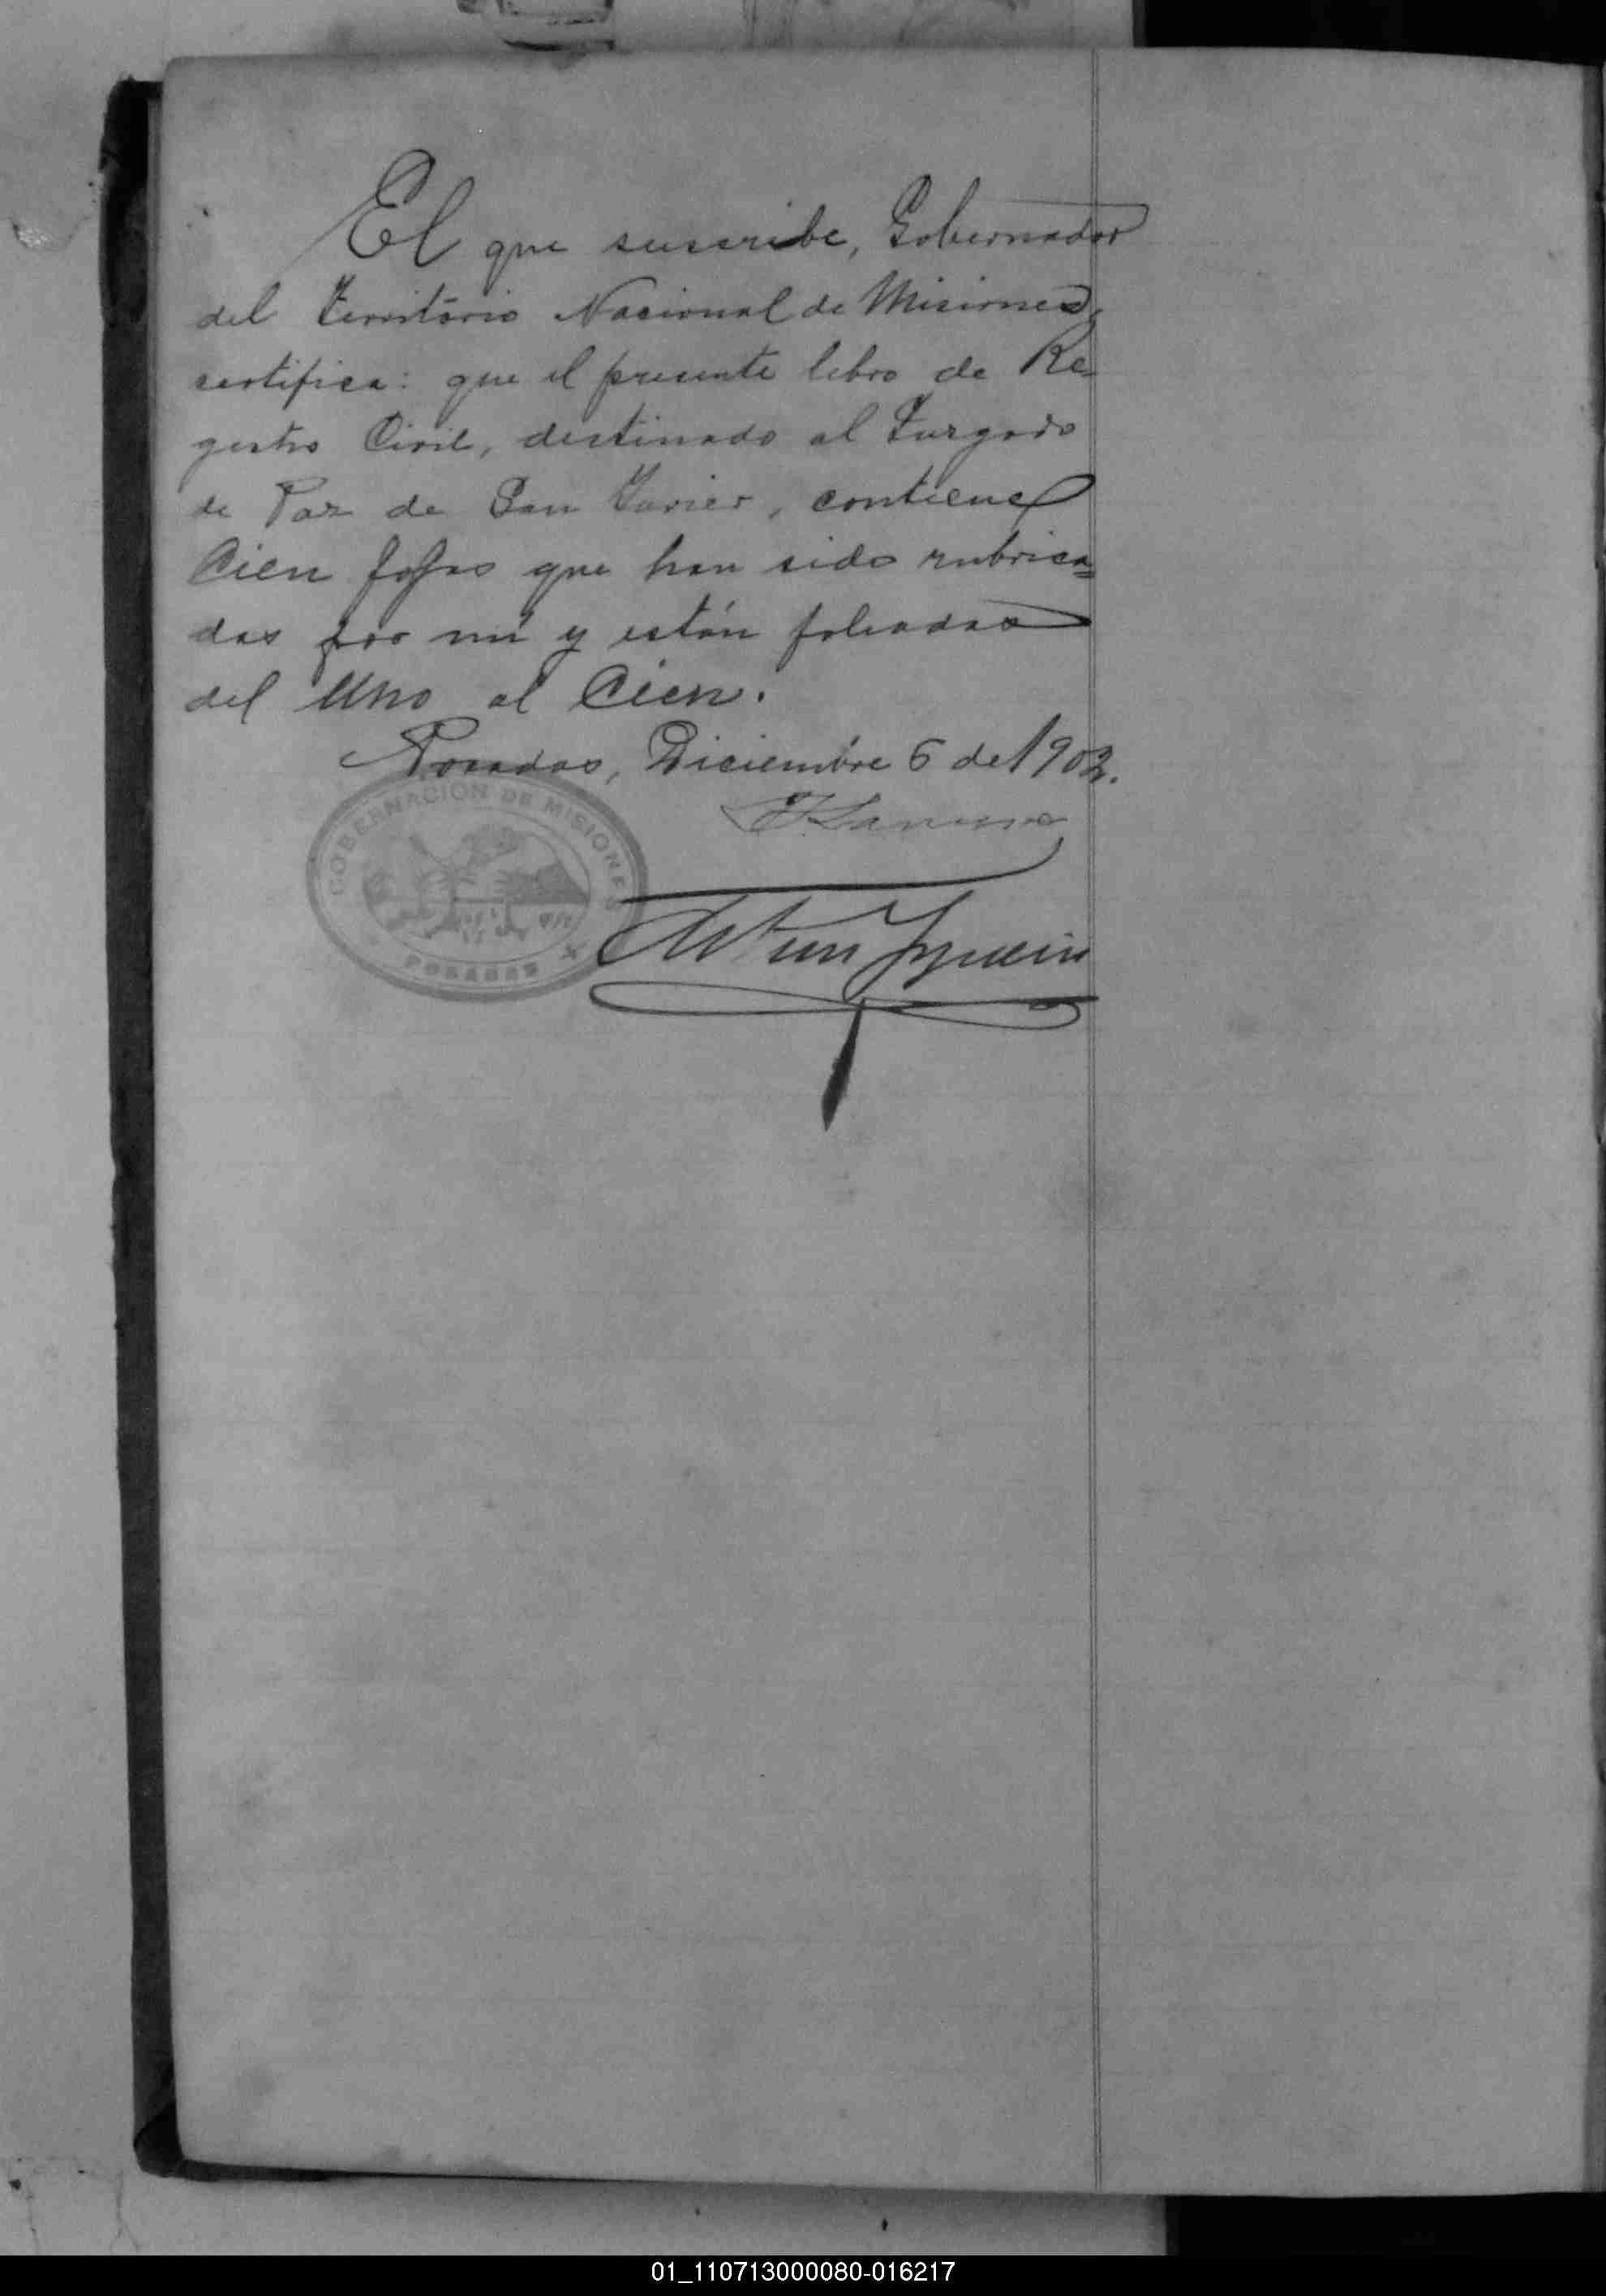 El que suscribe, Gobernador
del Territorio Nacional de Misiones,
certifica: que el presente libro de Re-
gistro Civil, destinado al Juzgado
de Paz de San Javier, contiene
Cien fojas que han sido rubrica=
das por mí y están foliadas
del Uno al Cien.
Posadas, Diciembre 6 de 1902.
J. Lanusse
GOBERNACION DE MISIONES
POSADAS
Artur
01_110713000080-016217